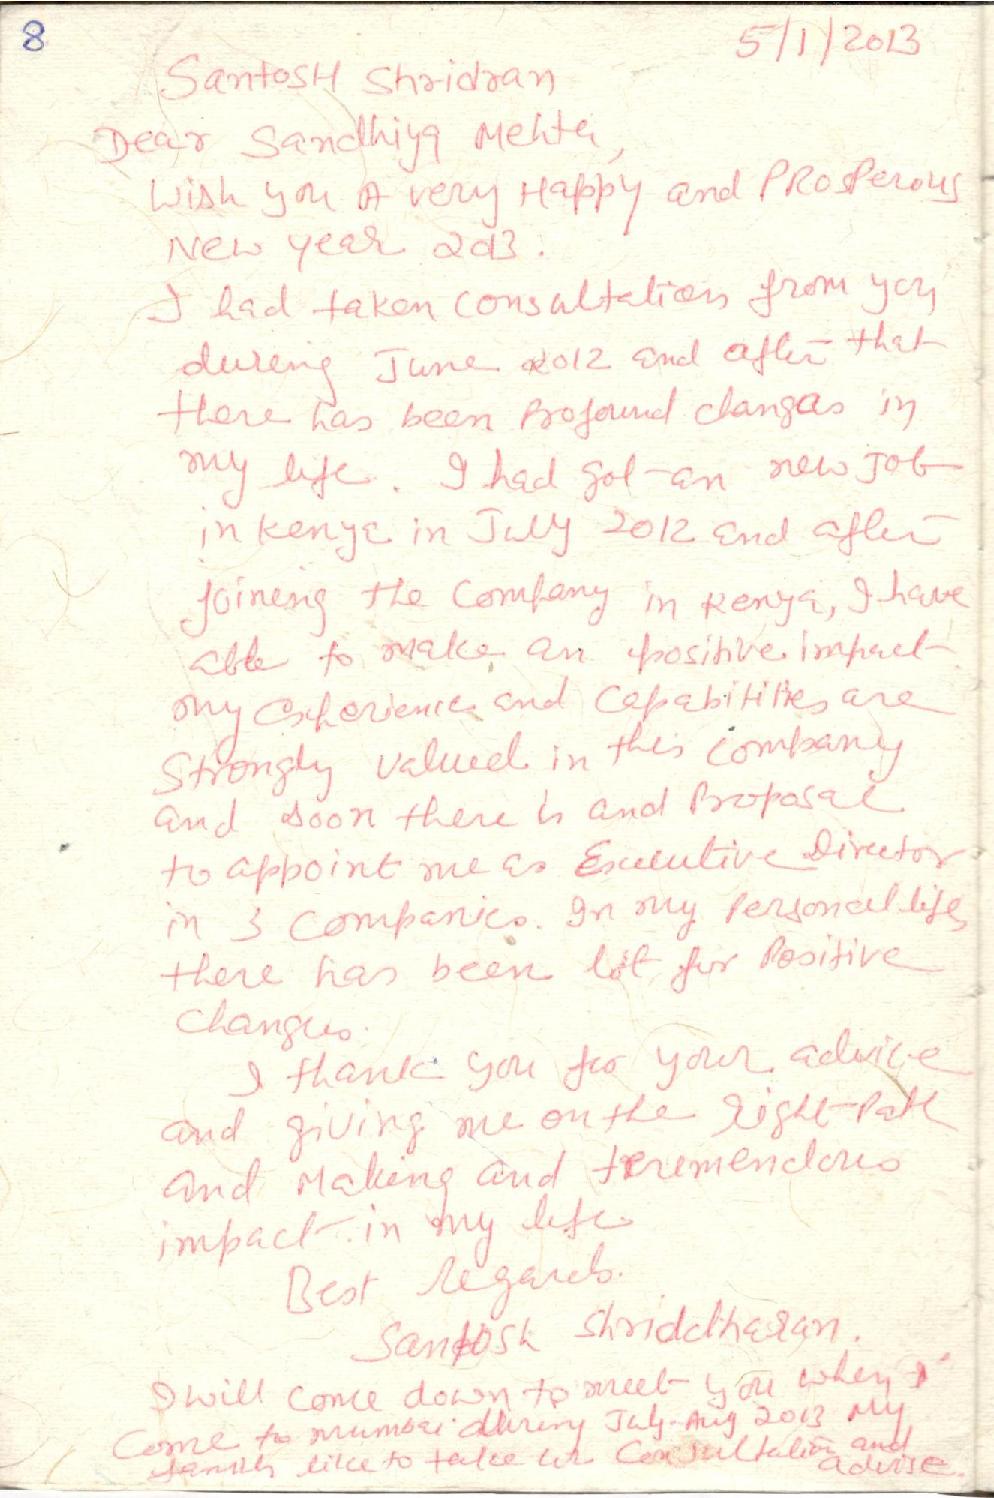 8
5/1/2013
Santosh Shridran
Dear Sandhiya Mehta,
Wish you A very Happy and PROSPerous
New year 2013.
I had taken consultation from you
during June 2012 and after that
there has been Profound changes in
my life. I had got an new Job
in Kenya in July 2012 and after
joining the company in Kenya, I have
able to make an positive impact.
my experience and capabilities are
Strongly valued in this company
and soon there is and Proposal
to appoint me as Executive Director
in 3 Companies. In my Personal life,
there has been lot for Positive
changes.
I thank you for your advice
and giving me on the right Path
and Making and tremendous
impact in my life
Best Regards.
Santosh Shriddharan.
I will come down to meet you when I
Come to mumbai during July-Aug 2013 My
family like to take ur Consultation and
advise.